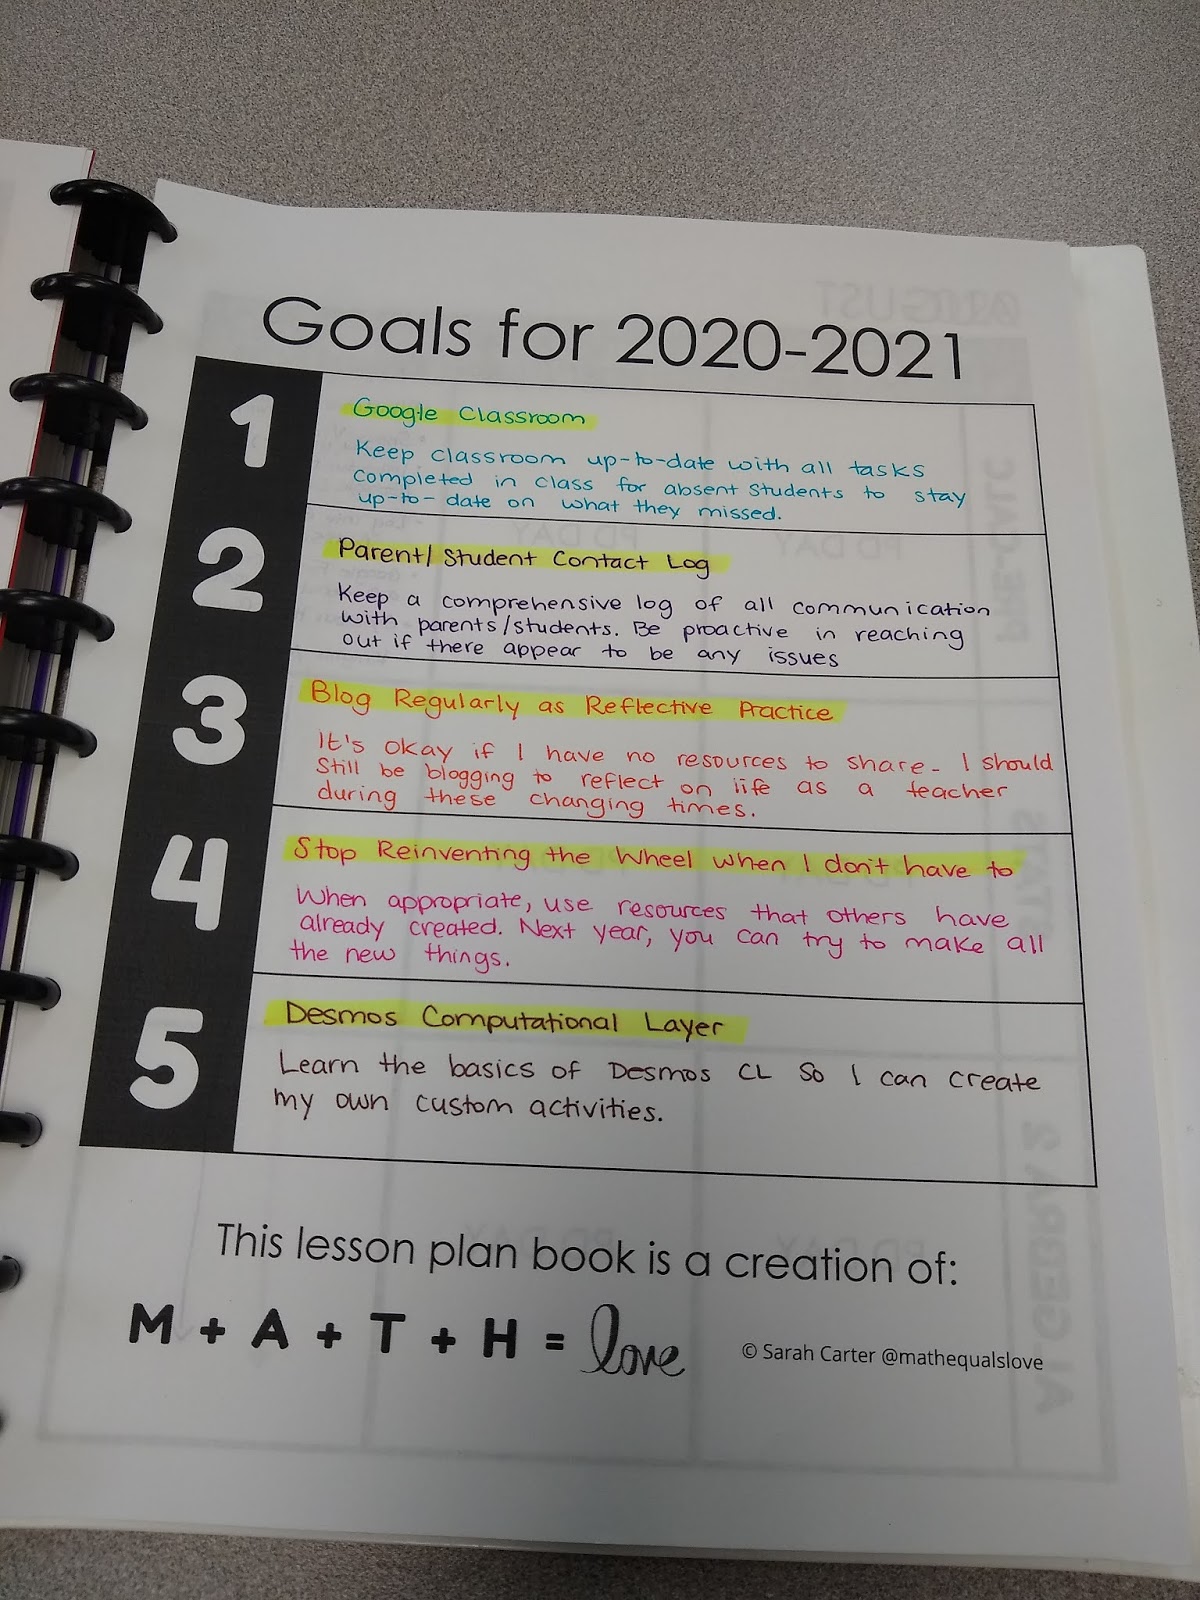 Goals for 2020-2021
1
Google Classroom
Keep classroom up-to-date with all tasks
completed in class for absent students to stay
up-to-date on what they missed.
2
Parent/Student Contact Log
Keep a comprehensive log of all communication
with parents/students. Be proactive in reaching
out if there appear to be any issues
3
Blog Regularly as Reflective Practice
It's okay if I have no resources to share. I should
still be blogging to reflect on life as a teacher
during these changing times.
4
Stop Reinventing the Wheel when I don't have to
When appropriate, use resources that others have
already created. Next year, you can try to make all
the new things.
5
Desmos Computational Layer
Learn the basics of Desmos CL so I can create
my own custom activities.
This lesson plan book is a creation of:
M + A + T + H = love
© Sarah Carter @mathequalslove
AUGUST
PRE-CALC
PD DAY
PD DAY
STATS
PD DAY
PD DAY
ALGEBRA 2
PD DAY
PD DAY